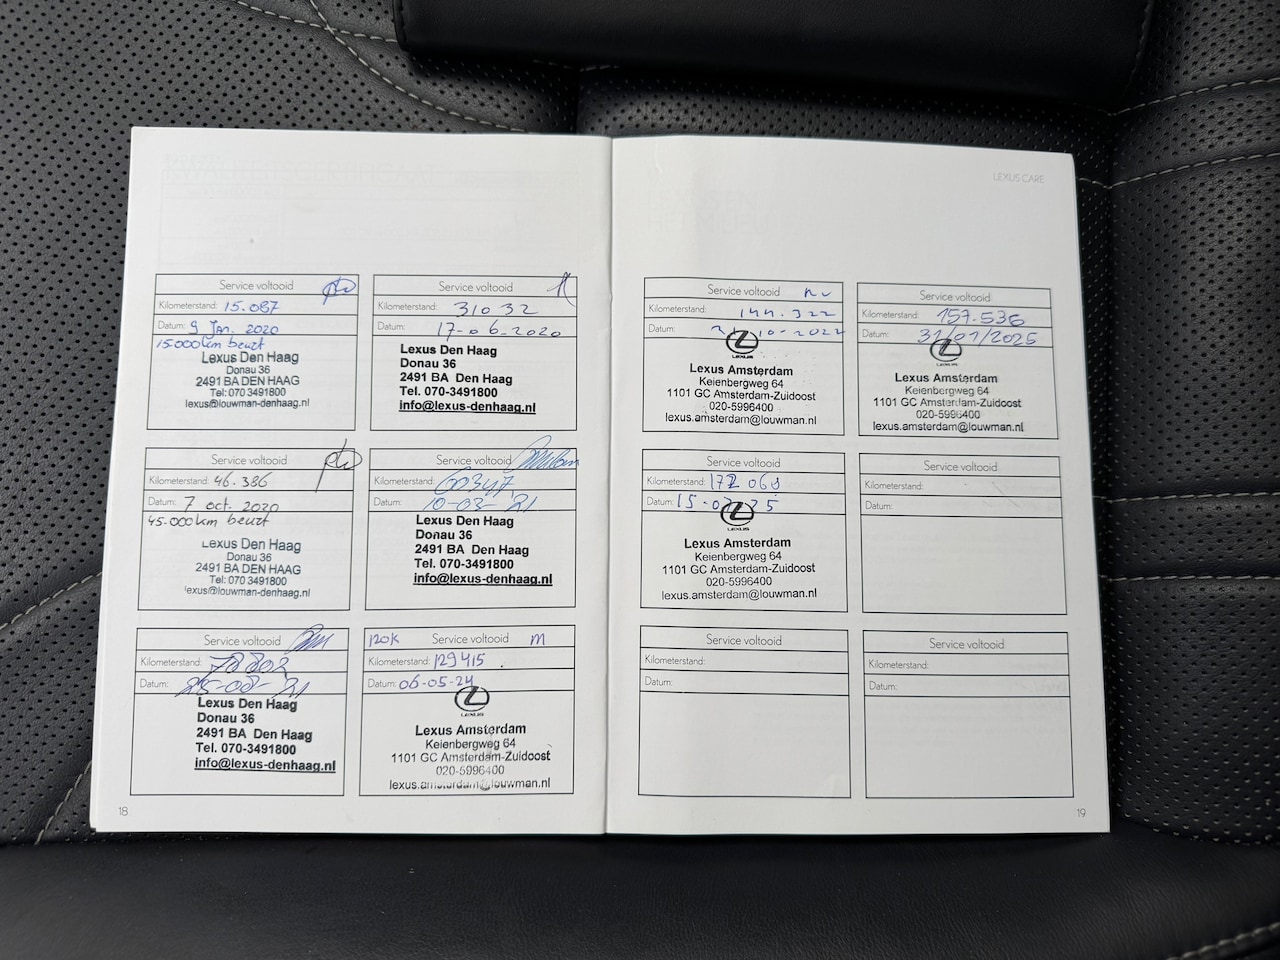 Service voltooid
Kilometerstand: 15.087
Datum: 9 Jan. 2020
15.000km beurt
Lexus Den Haag
Donau 36
2491 BA DEN HAAG
Tel: 070 3491800
lexus@louwman-denhaag.nl
Service voltooid
Kilometerstand: 31032
Datum: 17-06-2020
Lexus Den Haag
Donau 36
2491 BA Den Haag
Tel. 070-3491800
info@lexus-denhaag.nl
Service voltooid
Kilometerstand: 46.386
Datum: 7 oct. 2020
45.000km beurt
Lexus Den Haag
Donau 36
2491 BA DEN HAAG
Tel: 070 3491800
lexus@louwman-denhaag.nl
Service voltooid
Kilometerstand: 60347
Datum: 10-03-21
Lexus Den Haag
Donau 36
2491 BA Den Haag
Tel. 070-3491800
info@lexus-denhaag.nl
Service voltooid
Kilometerstand:
Datum:
Lexus Den Haag
Donau 36
2491 BA Den Haag
Tel. 070-3491800
info@lexus-denhaag.nl
120K Service voltooid M
Kilometerstand: 129415
Datum: 06-05-24
LEXUS
Lexus Amsterdam
Keienbergweg 64
1101 GC Amsterdam-Zuidoost
020-5996400
lexus.amsterdam@louwman.nl
18
LEXUS CARE
Service voltooid
Kilometerstand: 144.322
Datum:
LEXUS
Lexus Amsterdam
Keienbergweg 64
1101 GC Amsterdam-Zuidoost
020-5996400
lexus.amsterdam@louwman.nl
Service voltooid
Kilometerstand: 157.536
Datum: 31/01/2025
LEXUS
Lexus Amsterdam
Keienbergweg 64
1101 GC Amsterdam-Zuidoost
020-5996400
lexus.amsterdam@louwman.nl
Service voltooid
Kilometerstand: 172 068
Datum:
LEXUS
Lexus Amsterdam
Keienbergweg 64
1101 GC Amsterdam-Zuidoost
020-5996400
lexus.amsterdam@louwman.nl
Service voltooid
Kilometerstand:
Datum:
Service voltooid
Kilometerstand:
Datum:
Service voltooid
Kilometerstand:
Datum:
19